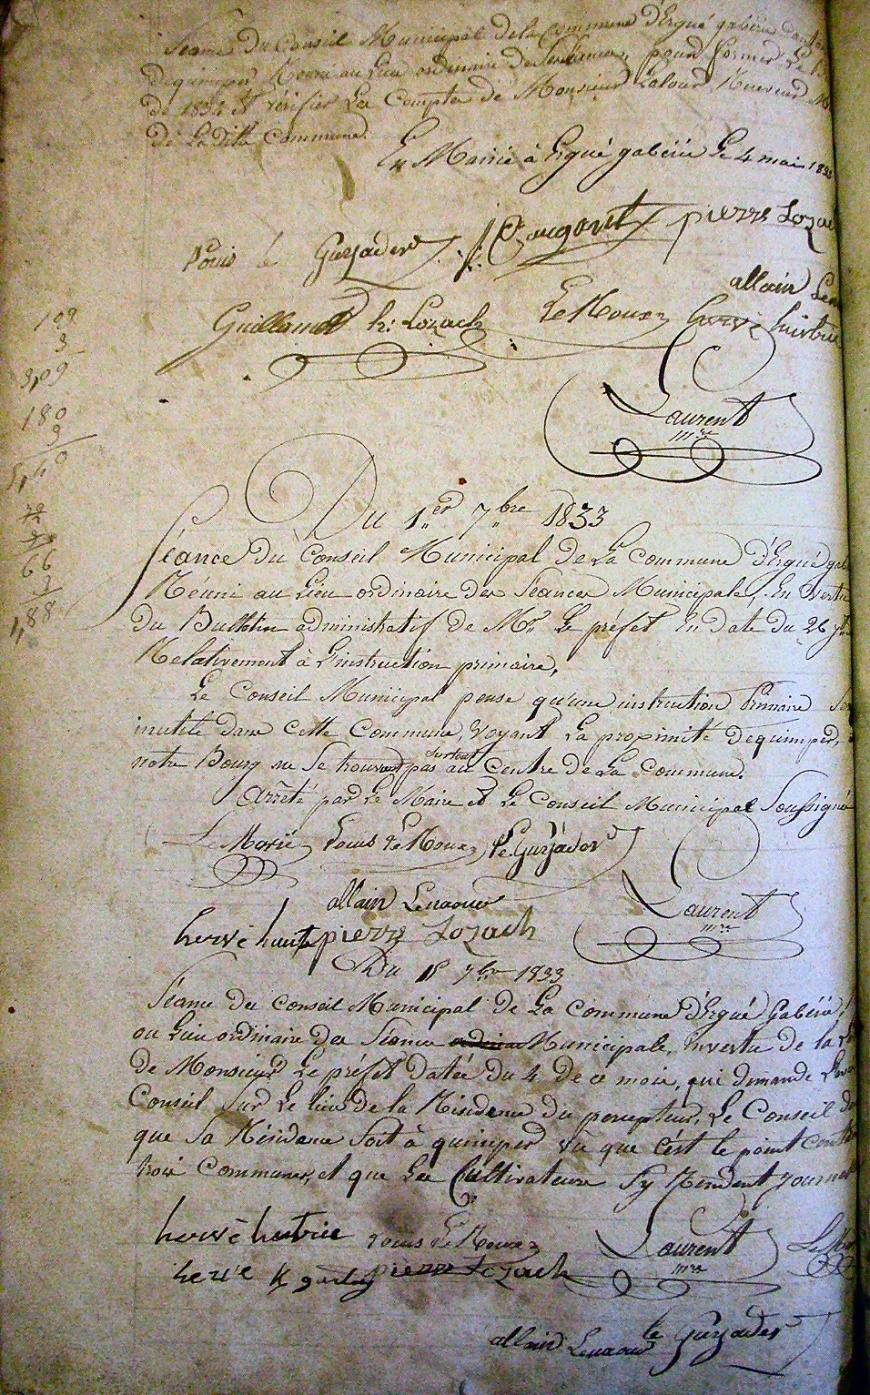 Séance du Conseil Municipal de la Commune d'Ergué gabéric
de quimper Réuni au Lieu ordinaire des Séances, pour former Le
de 1834 et vérifier Les Comptes de Monsieur Receveur
de La ditte Commune.
En Mairie à Ergué gabéric Le 4 mai 183
Louis le Guyader pierre Lozach
allain
Guillaume h: Lozach Le Roux hervé
Laurent
mre
109
3
3,09
180
3
5,40
66
3
1,88
Du 1er 7bre 1833
Séance du Conseil Municipal de La Commune d'Ergué
Réuni au Lieu ordinaire des Séances Municipale, En vertu
du Bulletin administratif de Mr Le préfet En date du 26
Relativement à L'instruction primaire,
Le Conseil Municipal pense qu'une instruction Primaire
inutile dans cette Commune, voyant La proximité de quimper,
notre Bourg ne Se trouvant pas surtout au Centre de La Commune.
Arrêté par Le Maire et Le Conseil Municipal Soussignés
Le Marié Louis Le Roux Le Guyader
allain Lenaour Laurent
mre
hervé pierre Lozach
Du 15 7bre 1833
Séance du Conseil Municipal de La Commune d'Ergué Gabéric,
au Lieu ordinaire des Séance Municipale, En vertu de la
de Monsieur Le préfet datée du 4 de ce mois, qui demande
Conseil Sur Le lieu de la Résidence du percepteur, Le Conseil
que Sa Résidence Soit à quimper vu que c'est le point
trois Communes, et que Les Cultivateurs S'y Rendent
hervé Louis Le Roux Laurent
mre
herve pierre Lozach
allain Lenaour le Guyader